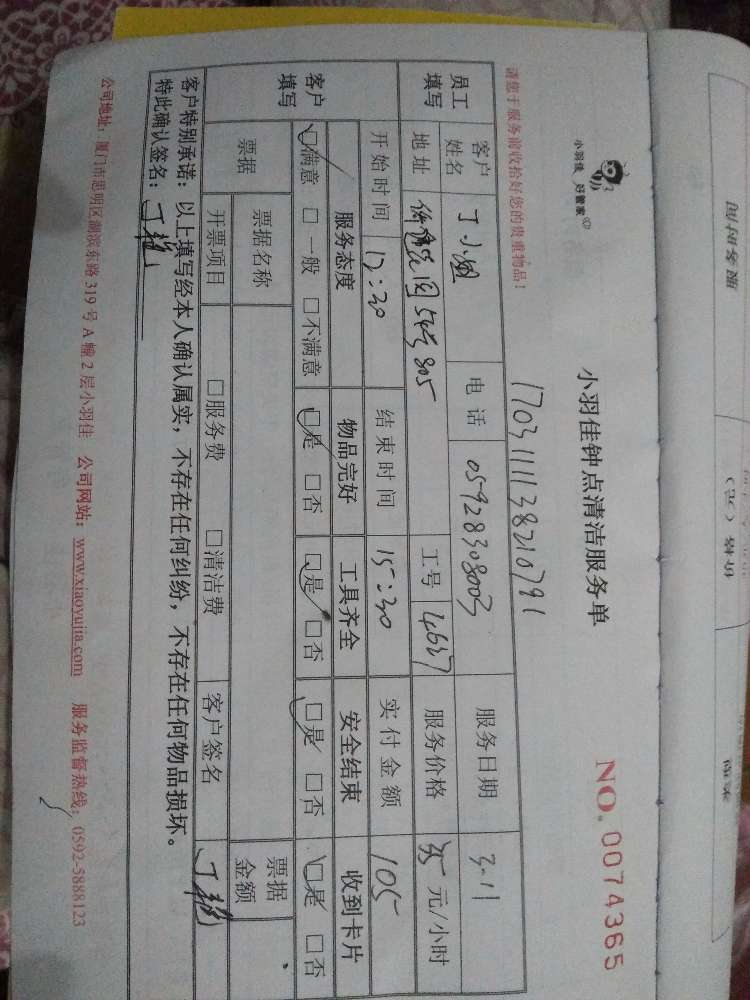 小羽佳 好管家
小羽佳钟点清洁服务单
NO. 0074365
1703111138210791
请您于服务前收拾好您的贵重物品！
员工填写
客户姓名 丁小姐 电话 05928308003 服务日期 3.11
地址 花园54号805 工号 4667 服务价格 35 元/小时
客户填写
开始时间 12:30 结束时间 15:30 实付金额 105
服务态度 物品完好 工具齐全 安全结束 收到卡片
☑满意 □一般 □不满意 ☑是 □否 ☑是 □否 ☑是 □否 ☑是 □否
票据 票据名称 票据金额
开票项目 □服务费 □清洁费 客户签名 丁
客户特别承诺：以上填写经本人确认属实，不存在任何纠纷，不存在任何物品损坏。
特此确认签名：丁
公司地址：厦门市思明区湖滨东路 319 号 A 幢 2 层小羽佳 公司网站：www.xiaoyujia.com 服务监督热线：0592-5888123